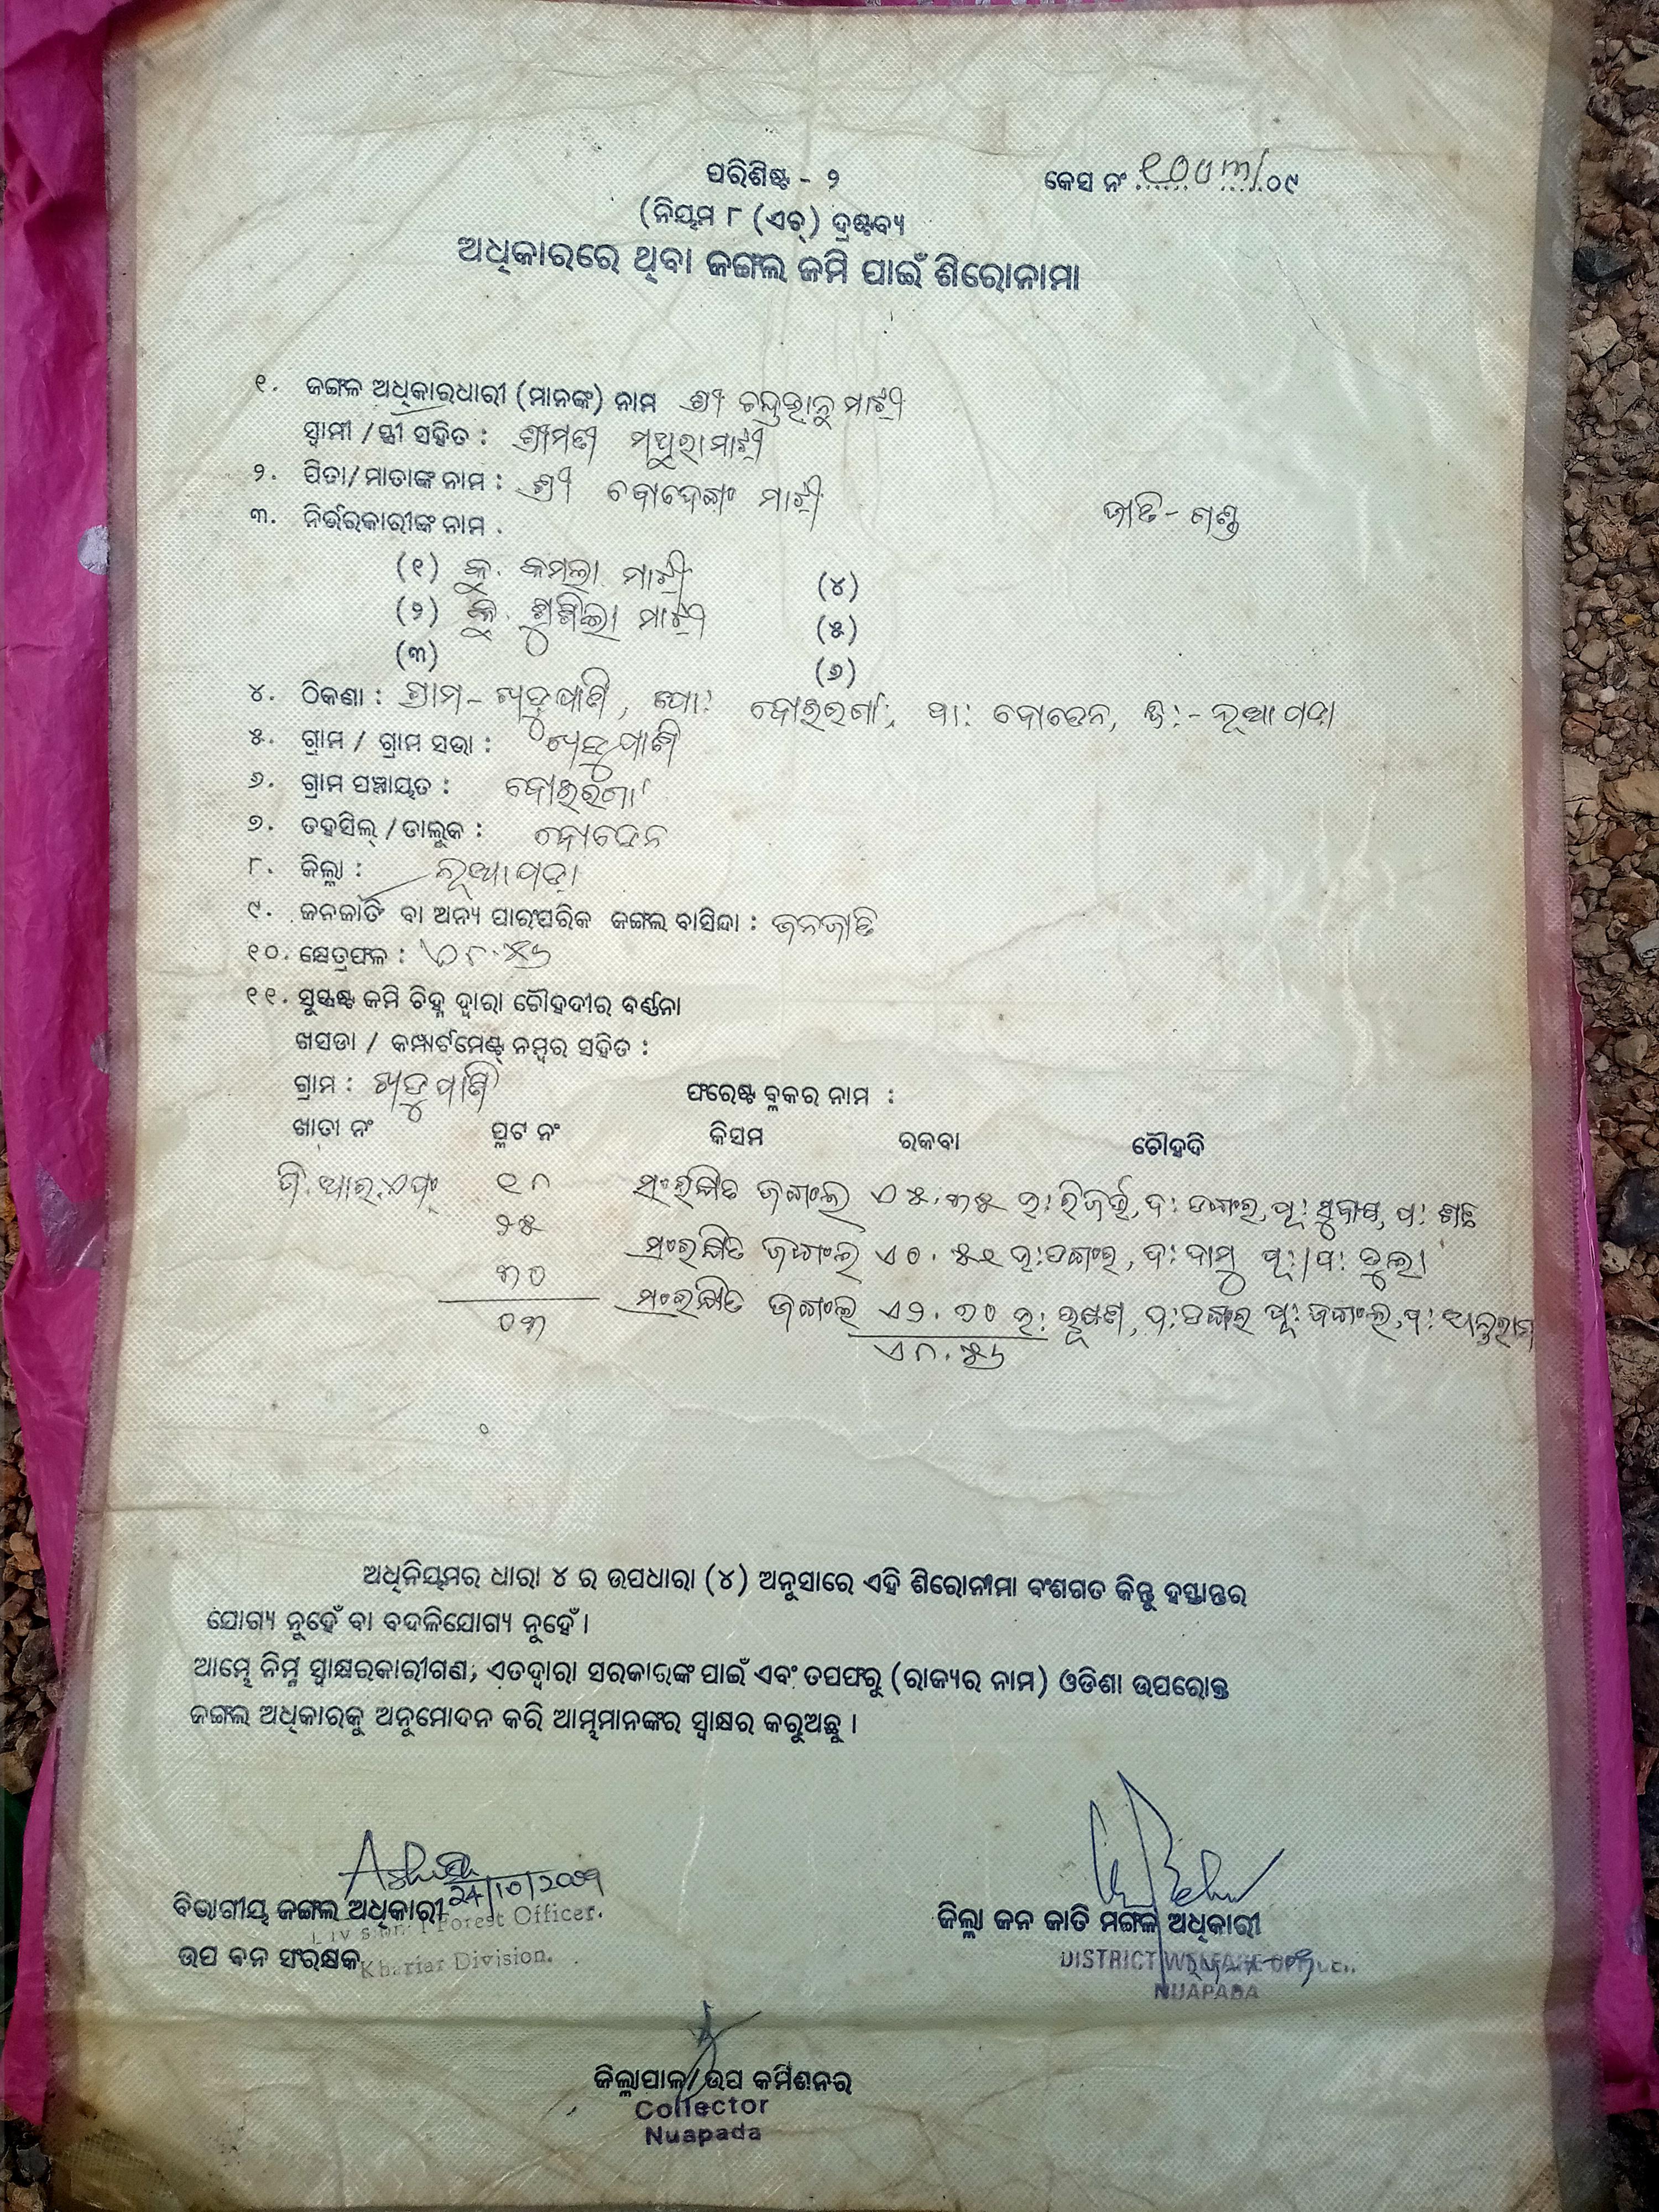 ପରିଶିଷ୍ଟ - ୨
କେସ ନଂ ......../୦୯
(ନିୟମ ୮ (ଏଚ୍) ଦ୍ରଷ୍ଟବ୍ୟ
ଅଧିକାରରେ ଥିବା ଜଙ୍ଗଲ ଜମି ପାଇଁ ଶିରୋନାମା
୧. ଜଙ୍ଗଳ ଅଧିକାରଧାରୀ (ମାନଙ୍କ) ନାମ ଶ୍ରୀ ଚନ୍ଦ୍ରଭାନୁ ମାଝୀ
ସ୍ୱାମୀ / ସ୍ତ୍ରୀ ସହିତ : ଶ୍ରୀମତୀ ମଥୁରା ମାଝୀ
୨. ପିତା/ମାତାଙ୍କ ନାମ : ଶ୍ରୀ ମାଝୀ
୩. ନିର୍ଭରକାରୀଙ୍କ ନାମ . ଜାତି - ଗଣ୍ଡ
(୧) କୁ. କମଲା ମାଝୀ (୪)
(୨) କୁ. ମାଝୀ (୫)
(୩) (୬)
୪. ଠିକଣା : ଗ୍ରାମ - ଖଡୁପାଣି, ପୋ: ପା: ବୋଡେନ, ଜି:- ନୂଆପଡ଼ା
୫. ଗ୍ରାମ / ଗ୍ରାମ ସଭା : ଖଡୁପାଣି
୬. ଗ୍ରାମ ପଞ୍ଚାୟତ :
୭. ତହସିଲ୍ / ତାଲୁକ : ବୋଡେନ
୮. ଜିଲ୍ଲା : ନୂଆପଡ଼ା
୯. ଜନଜାତି ବା ଅନ୍ୟ ପାରଂପରିକ ଜଙ୍ଗଲ ବାସିନ୍ଦା : ଜନଜାତି
୧୦. କ୍ଷେତ୍ରଫଳ : ଏ୮.୫୬
୧୧. ସୁସ୍ପଷ୍ଟ ଜମି ଚିହ୍ନ ଦ୍ୱାରା ଚୌହଦୀର ବର୍ଣ୍ଣନା
ଖସଡା / କମ୍ପାର୍ଟମେଣ୍ଟ୍ ନମ୍ବର ସହିତ :
ଗ୍ରାମ : ଖଡୁପାଣି ଫରେଷ୍ଟ ବ୍ଳକର ନାମ :
ଖାତା ନଂ ପ୍ଳଟ ନଂ କିସମ ରକବା ଚୌହଦି
ଜି.ଆର.ଏଫ୍ ୧୮ ସଂରକ୍ଷିତ ଜଙ୍ଗଲ ଏ୫.୩୫ ଉ: ରିଜର୍ଭ, ଦ: ଡଙ୍ଗର, ପୂ: ପ:
୨୫ ସଂରକ୍ଷିତ ଜଙ୍ଗଲ ଏ୦.୫୧ ଉ: ଡଙ୍ଗର, ଦ: ଦାମୁ ପୂ:/ପ: ଡୁଲା
୩୦ ସଂରକ୍ଷିତ ଜଙ୍ଗଲ ଏ୨.୭୦ ଉ: ଭୂଷଣ, ଦ: ଡଙ୍ଗର ପୂ: ଜଙ୍ଗଲ, ପ:
୦୩ ଏ୮.୫୬
ଅଧିନିୟମର ଧାରା ୪ ର ଉପଧାରା (୪) ଅନୁସାରେ ଏହି ଶିରୋନାମା ବଂଶଗତ କିନ୍ତୁ ହସ୍ତାନ୍ତର
ଯୋଗ୍ୟ ନୁହେଁ ବା ବଦଳିଯୋଗ୍ୟ ନୁହେଁ ।
ଆମ୍ଭେ ନିମ୍ନ ସ୍ୱାକ୍ଷରକାରୀଗଣ, ଏତଦ୍ୱାରା ସରକାରଙ୍କ ପାଇଁ ଏବଂ ତପଫରୁ (ରାଜ୍ୟର ନାମ) ଓଡିଶା ଉପରୋକ୍ତ
ଜଙ୍ଗଲ ଅଧିକାରକୁ ଅନୁମୋଦନ କରି ଆମ୍ଭମାନଙ୍କର ସ୍ୱାକ୍ଷର କରୁଅଛୁ ।
24/10/2009
ବିଭାଗୀୟ ଜଙ୍ଗଲ ଅଧିକାରୀ
Divisional Forest Officer.
ଉପ ବନ ସଂରକ୍ଷକ
Khariar Division.
ଜିଲ୍ଲା ଜନ ଜାତି ମଙ୍ଗଳ ଅଧିକାରୀ
DISTRICT WELFARE OFFICER
NUAPADA
ଜିଲ୍ଲାପାଳ/ଉପ କମିଶନର
Collector
Nuapada